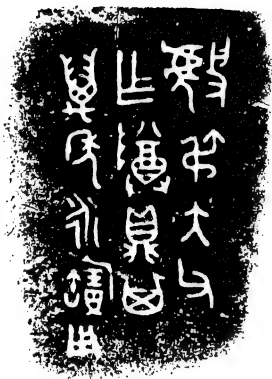 大父
乍䵼鼎其
萬年永寶用